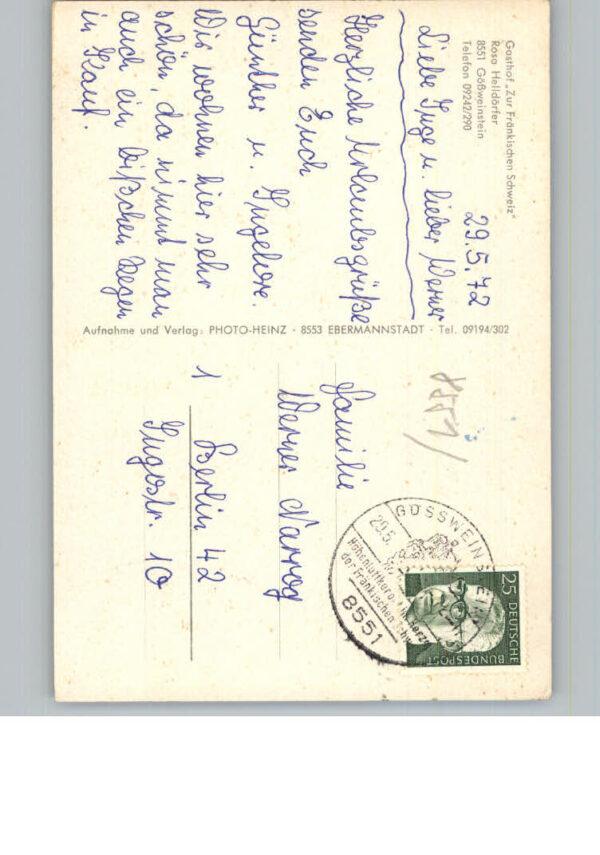 Gasthof „Zur Fränkischen Schweiz"
Rosa Helldörfer
8551 Gößweinstein
Telefon 09242/290
29.5.72
Liebe Inge u. lieber Werner
Herzliche Urlaubsgrüße
senden Euch
Günther u. Ingelore.
Wir wohnen hier sehr
schön, da nimmt man
auch ein bißchen Regen
in Kauf.
Aufnahme und Verlag: PHOTO-HEINZ · 8553 EBERMANNSTADT · Tel. 09194/302
8551/
Familie
Werner Narrog
1 Berlin 42
Ingostr. 10
GÖSSWEINSTEIN
29.5.
Höhenluftkurort im Herzen
der Fränkischen
8551
25 DEUTSCHE
BUNDESPOST